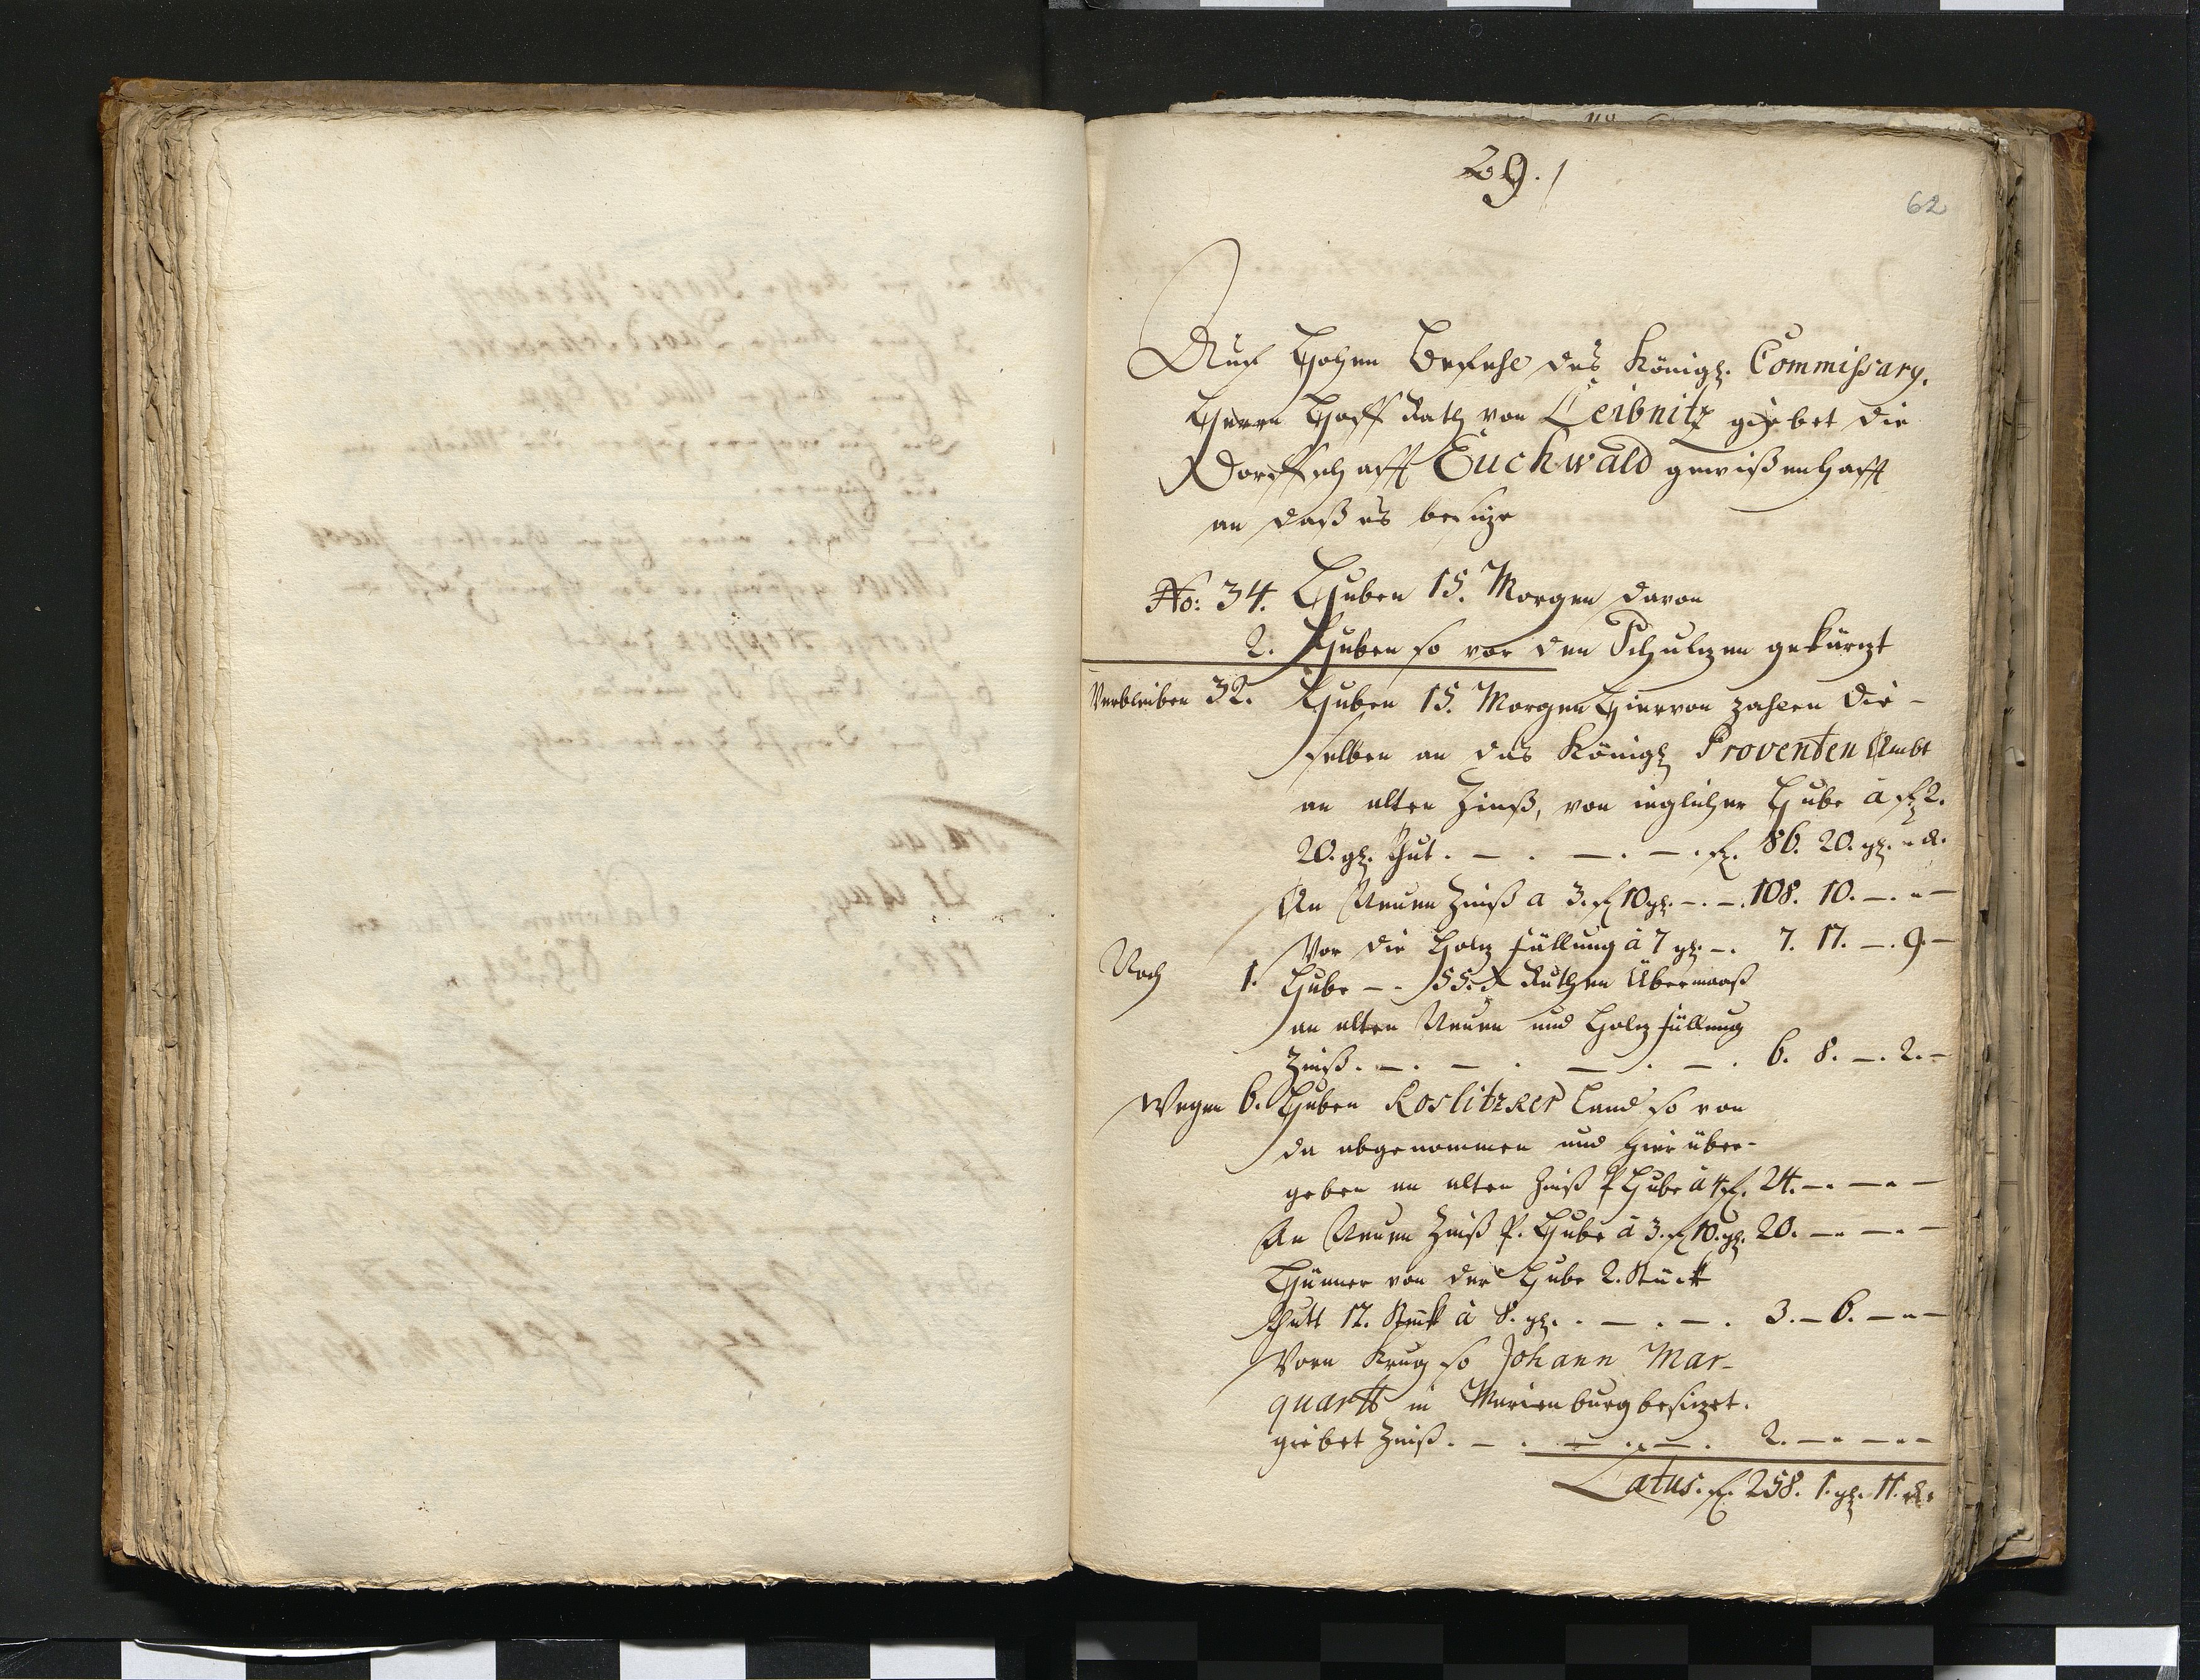 29./
62
Auf Hohen Befehl des Königl. Commissary.
Herrn Hoff Rath von Leibnitz giebet die
Dorffschafft Euchwald gewißenhafft
an daß es besitze
No: 34. Huben 15. Morgen davon
2. Huben so vor den Schulzen gekürtzt
Verbleiben 32. Huben 15. Morgen Hiervon zahlen die-
selben an das Königl Proventen Ambt
an alten Zinß, von ieglicher Hube à fl 2.
20. gl. thut. — . — . — . fl. 86. 20. gl. - d.
An Neuen Zinß a 3. fl 10 gl. - . - . 108. 10. — . - —
Vor die Holtz fällung à 7 gl. - . 7. 17. — . 9. —
Noch 1. Hube — - 55. Ruthen Übermaaß
an alten Neuen und Holtz füllung
Zinß. — . — . — . — . 6. 8. — . 2. —
Wegen 6. Huben Koslitzker Land so von
da abgenommen und hier über-
geben an alten Zinß P Hube à 4 fl. 24. — . — - —
An Neuen Zinß P. Hube à 3. fl 10. gl. 20. — . — . —
Hünner von der Hube 2. Stück
thutt 12. Stück à 8. gl. . — . — . 3. — 6. — - —
Vorn Krug so Johann Mar-
quartt in Marienburg besitzet.
giebet Zinß. — . — . — . 2. — - — - —
Latus. fl. 258. 1. gl. 11. d.